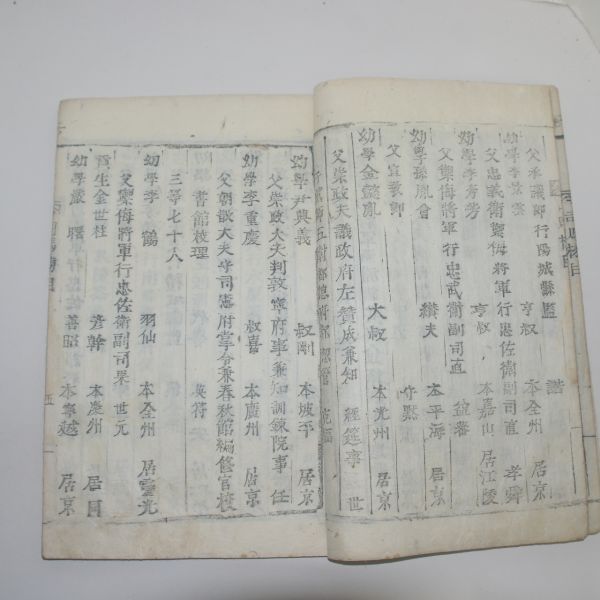 父承議郎行陽城縣監 諧
幼學李景雲 亨叔 本全州 居京
父忠義衛禦侮將軍行忠佐衛副司直 孝舜
幼學李秀芳 亨叔 本嘉山 居江陵
父禦侮將軍行忠武衛副司直 益蕃
幼學孫胤會 纘夫 本平海 居京
父宣敎郞 守默
幼學金懿胤 大叔 本光州 居京
父崇政大夫議政府左贊成兼知 經筵事 世
幼學尹興義 叔剛 本坡平 居京
父崇政大夫判敦寧府事兼知訓鍊院事 任
幼學李重慶 叔喜 本廣州 居京
父朝散大夫守司憲府掌令兼春秋館編修官校
書館校理 英符
三等七十人
幼學李鶴 羽仙 本全州 居靈光
父禦侮將軍行忠佐衛副司果 世元
生金世柱 彦幹 本慶州 居
幼學嚴曙 善昭 本寧越 居京
五